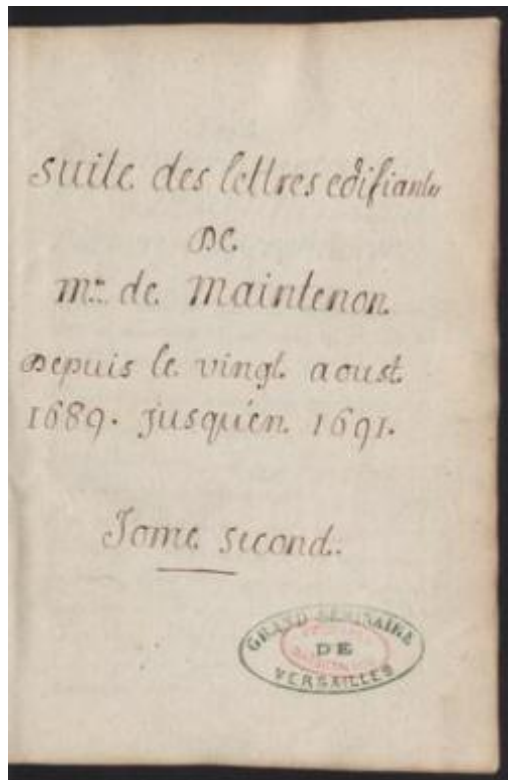 suite des lettres edifiantes
De
mᵉ. de maintenon
Depuis le vingt aoust
1689. jusqu'en 1691.
Tome second.
GRAND SÉMINAIRE
DE
VERSAILLES